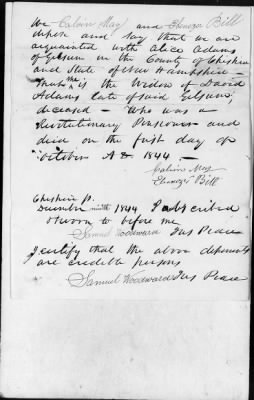 We Calvin May and Ebenezer Bill
depose and say that we are
acquainted with Alice Adams
of Gilsum in the County of Cheshire
and State of New Hampshire –
that is the Widow of David
Adams late of said Gilsum,
deceased – who was a
Revolutionary Pensioner and
died on the first day of
October A D 1844. –
Calvin May
Ebenezer Bill
Cheshire ss.
December ninth 1844 Subscribed
& sworn to before me
Samuel Woodward Jus Peace
I certify that the above deponents
are credible persons
Samuel Woodward Jus Peace